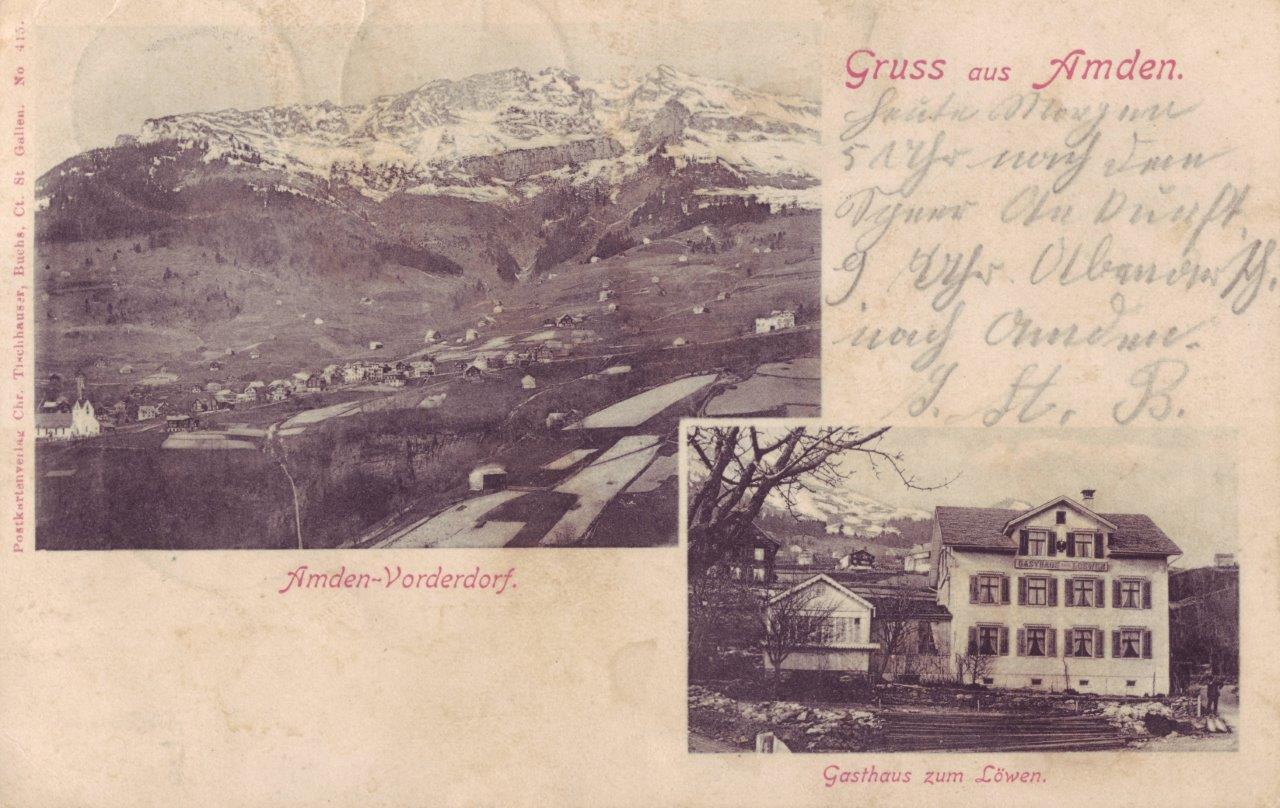 Gruss aus Amden.
Heute Morgen
5 Uhr nach dem
9 Uhr Abends
nach Amden.
J. St. B.
Postkartenverlag Chr. Tischhauser, Buchs, Ct. St Gallen. No 415.
Amden-Vorderdorf.
GASTHAUS ZUM LOEWEN
Gasthaus zum Löwen.